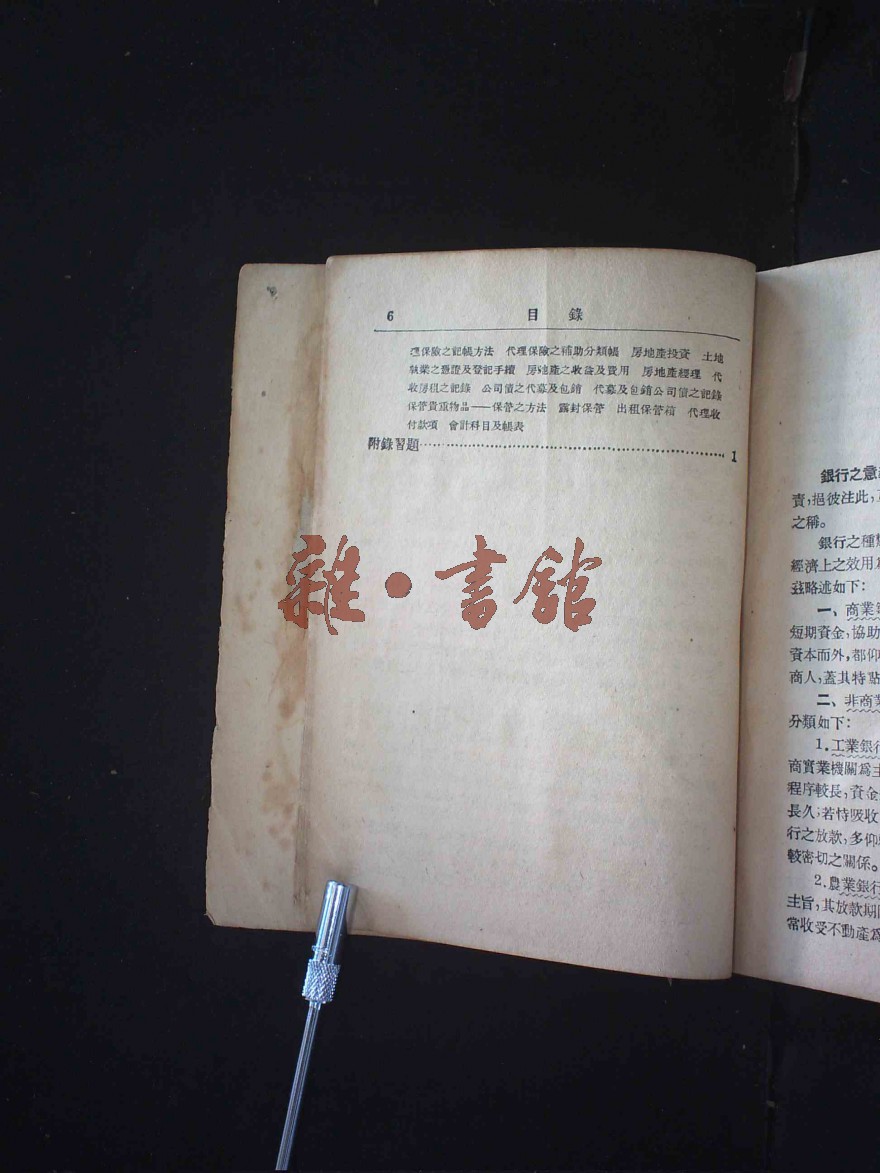 6 目錄
理保險之記帳方法 代理保險之補助分類帳 房地產投資 土地
執業之憑證及登記手續 房地產之收益及費用 房地產經理 代
收房租之記錄 公司債之代募及包銷 代募及包銷公司債之記錄
保管貴重物品——保管之方法 露封保管 出租保管箱 代理收
付款項 會計科目及帳表
附錄習題 1
雜·書館
銀行之意
賣,挹彼注此,
之稱。
銀行之種
經濟上之效用
茲略述如下:
一、商業
短期資金,協助
資本而外,都仰
商人,蓋其特點
二、非商業
分類如下:
1.工業銀行
商實業機關爲主
程序較長,資金
長久;若恃吸收
行之放款,多仰
較密切之關係。
2.農業銀行
主旨,其放款期
常收受不動產爲